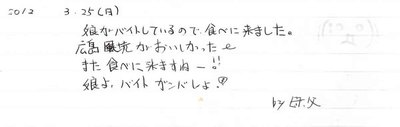 2012 3.25(日)
娘がバイトしているので、食べに来ました。
広島風焼がおいしかった
また食べに来ますねー!!
娘よ、バイトガンバしょ!
by 母、父